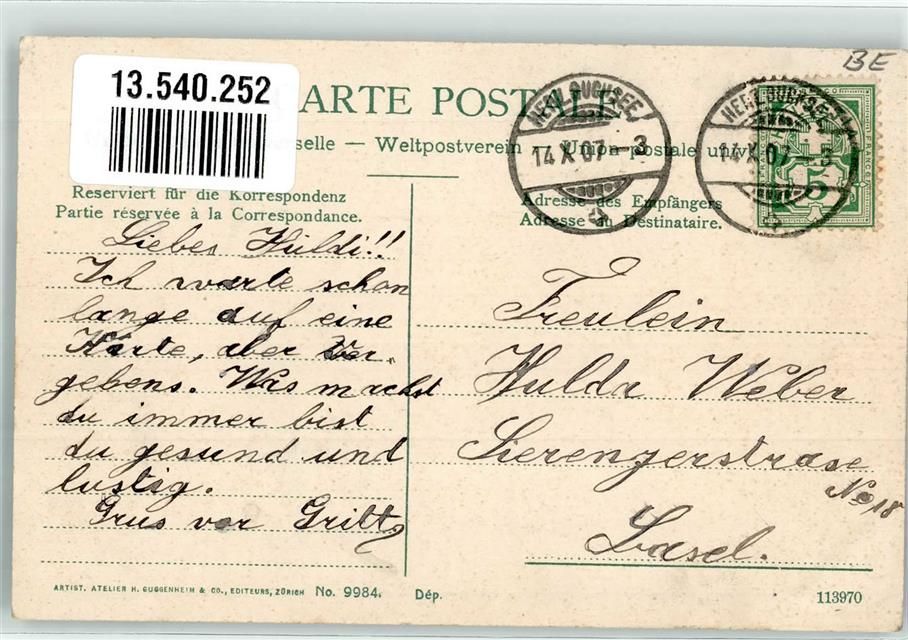 BE
13.540.252
CARTE POSTALE
Weltpostverein — Union postale universelle
Reserviert für die Korrespondenz
Partie réservée à la Correspondance.
Adresse des Empfängers
Adresse du Destinataire.
HERZ.BUCHSEE
14 X 07 – 3
HERZ.BUCHSEE
14 X 07 – 3
5
FRANCO
Liebes Huldi!!
Ich warte schon
lange auf eine
Karte, aber ver„
gebens. Was machst
du immer bist
du gesund und
lustig.
Grus von Gritt
Freulein
Hulda Weber
Sierenzerstrase
No 18
Basel.
ARTIST. ATELIER H. GUGGENHEIM & CO., EDITEURS, ZÜRICH No. 9984. Dép.
113970